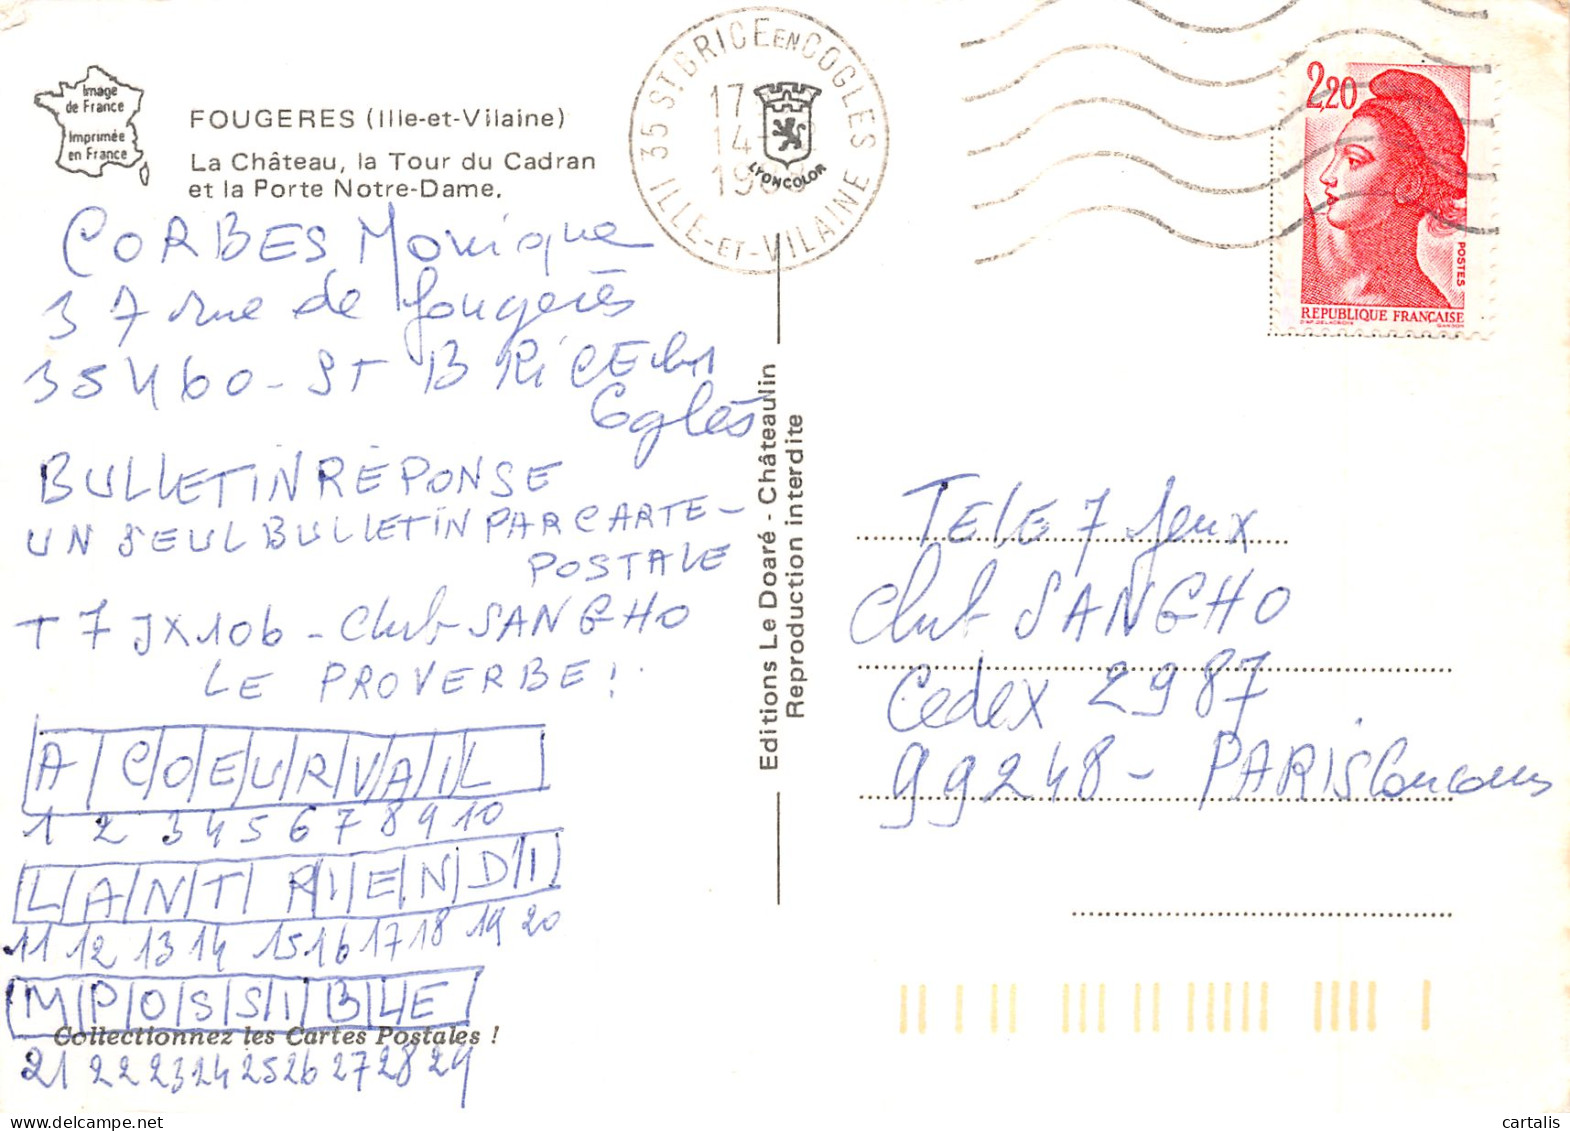 Image
de France
Imprimée
en France
FOUGERES (Ille-et-Vilaine)
La Château, la Tour du Cadran
et la Porte Notre-Dame.
35 ST BRICE EN COGLES
ILLE-ET-VILAINE
17
14
LYONCOLOR
2,20
POSTES
REPUBLIQUE FRANÇAISE
CORBES Monique
37 rue de fougerès
35460 - ST BRICE en
Coglès
BULLETIN RÉPONSE
UN SEUL BULLETIN PAR CARTE-
POSTALE
T7JX106 - Club SANGHO
LE PROVERBE !
A COEURVAIL
1 2 3 4 5 6 7 8 9 10
LANTRIEND'I
11 12 13 14 15 16 17 18 19 20
MPOSSIBLE
Collectionnez les Cartes Postales !
21 22 23 24 25 26 27 28 29
Editions Le Doaré - Châteaulin
Reproduction interdite
TELE 7 Jeux
Club SANGHO
Cedex 2987
99248 - PARIS Concours
cartalis